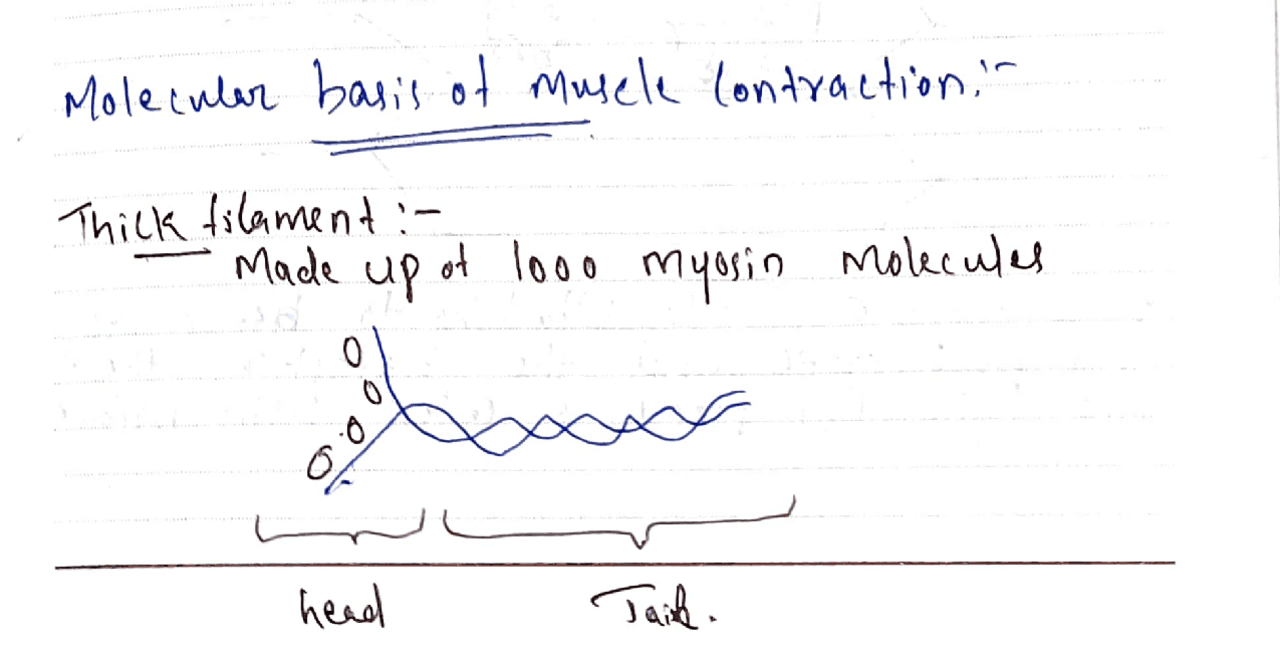 Molecular basis of Muscle Contraction:-
Thick filament :-
Made up of 1000 myosin Molecules
head Tail.